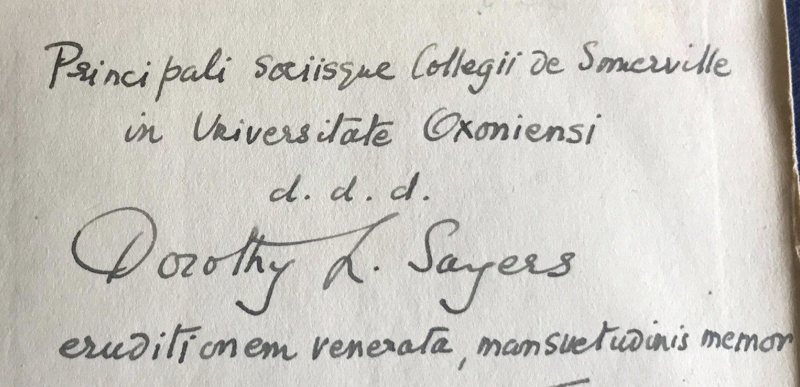 Principali sociisque Collegii de Somerville
in Universitate Oxoniensi
d. d. d.
Dorothy L. Sayers
eruditionem venerata, mansuetudinis memor